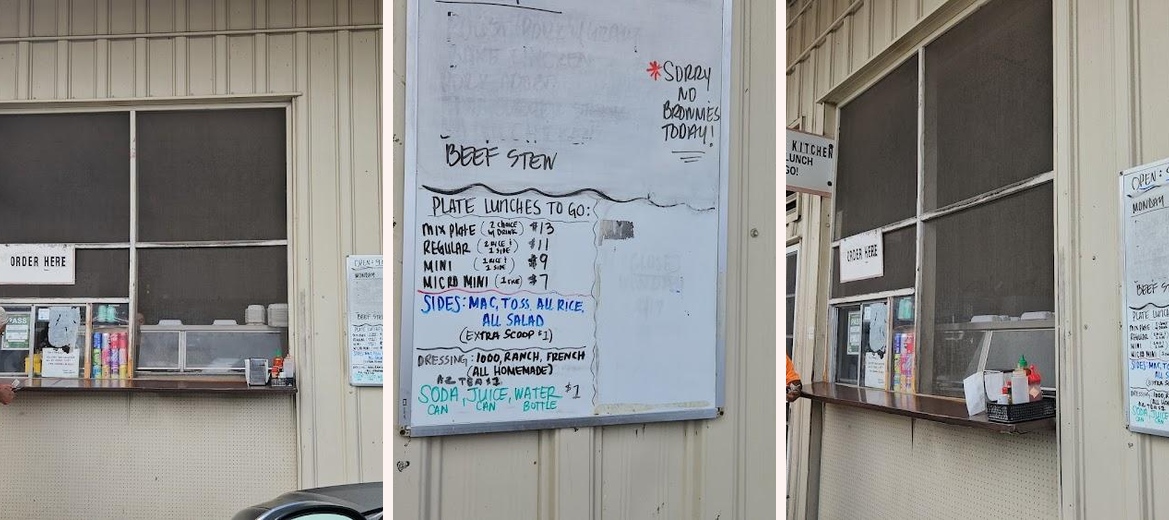 ORDER HERE
PASS
BEEF STEW
*SORRY
NO
BROWNIES
TODAY!
BEEF STEW
PLATE LUNCHES TO GO:
MIX PLATE (2 CHOICE W/ DRINK) $13
REGULAR (2 RICE & 1 SIDE) $11
MINI (1 RICE & 1 SIDE) $9
MICRO MINI (1 RICE) $7
SIDES: MAC, TOSS, ALL RICE,
ALL SALAD
(EXTRA SCOOP $1)
DRESSING: 1000, RANCH, FRENCH
(ALL HOMEMADE)
AZ TEA $2
SODA, JUICE, WATER $1
CAN CAN BOTTLE
KITCHEN
LUNCH
GO!
ORDER HERE
OPEN:
MONDAY
BEEF S
PLATE LUNC
MIX PLATE
REGULAR
MINI
MICRO MINI
SIDES: M
DRESSING:
SODA, JUICE
CAN